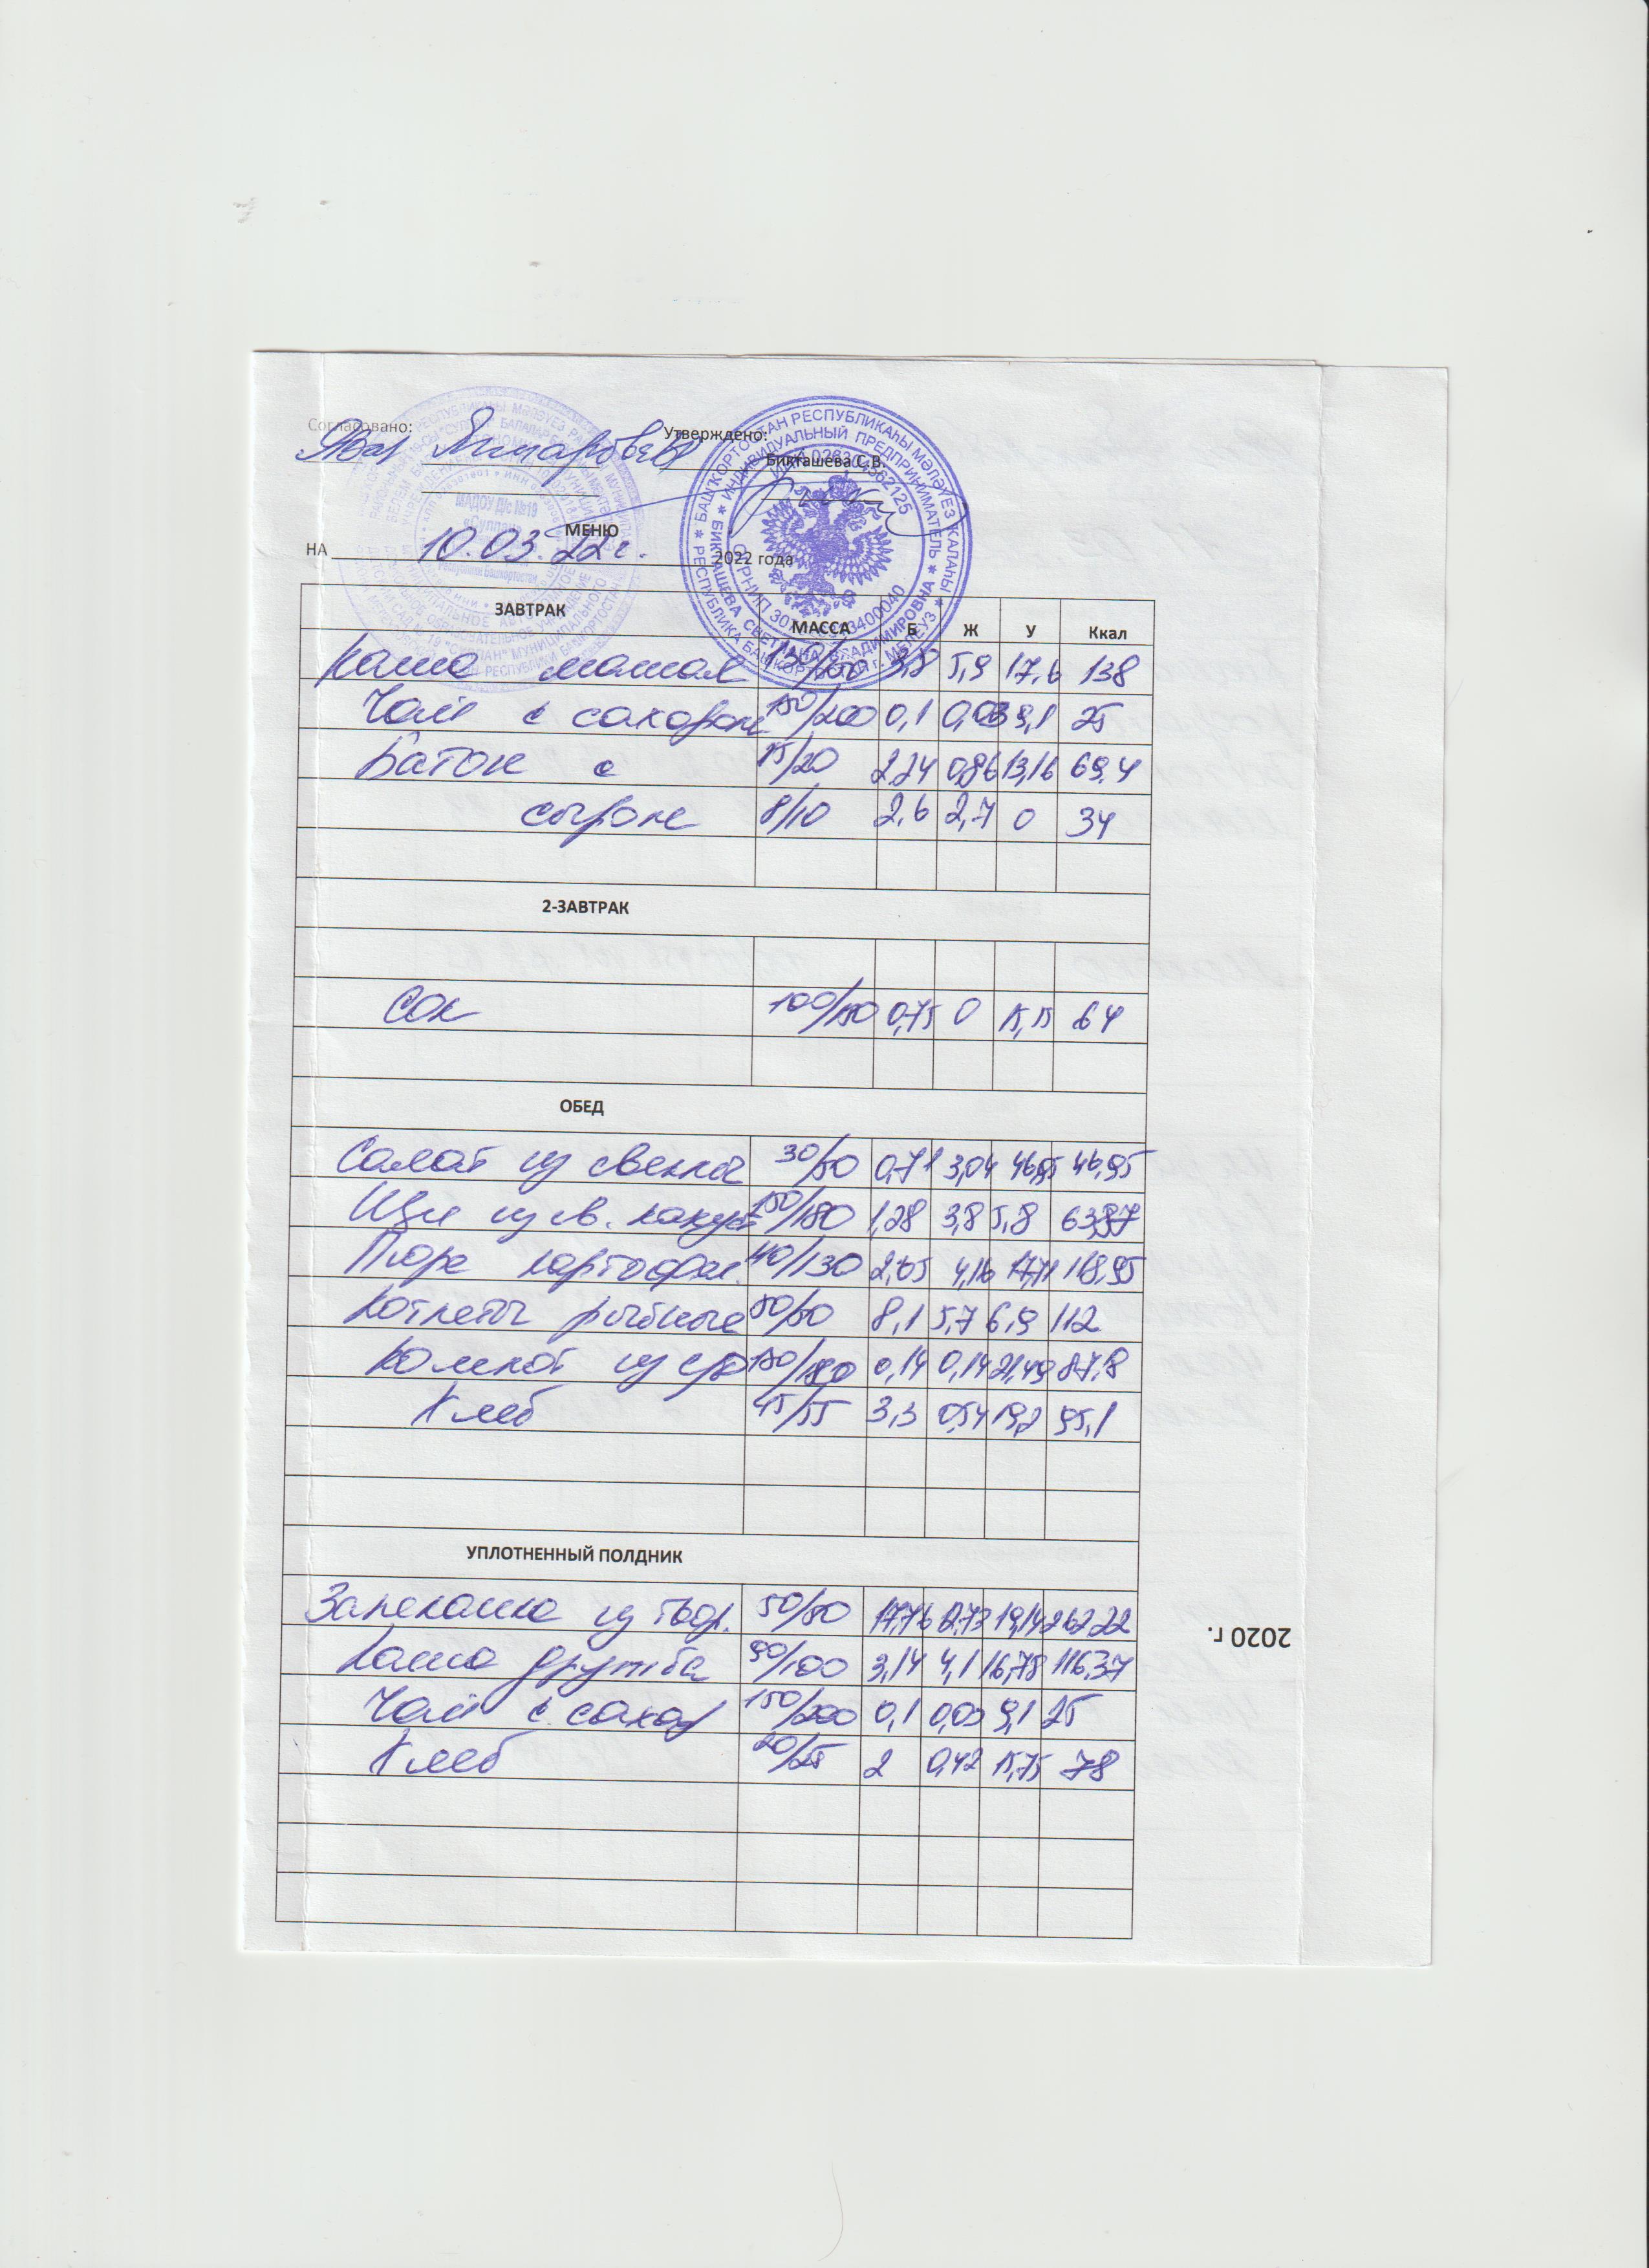 Согласовано:
Утверждено:
Бикташева С.В.
МЕНЮ
НА 10.03.22г. 2022 года
ЗАВТРАК МАССА Б Ж У Ккал
Каша манная 150/200 3,8 5,9 17,6 138
Чай с сахаром 150/200 0,1 0,03 9,1 25
Батон с 15/20 2,24 0,86 13,16 69,4
сыром 8/10 2,6 2,7 0 34
2-ЗАВТРАК
Сок 100/150 0,75 0 15,15 64
ОБЕД
Салат из свеклы 30/50 0,71 3,04 46,95
Щи из св. капус 150/180 1,28 3,8 5,8 63,87
Пюре картофел. 110/130 2,05 4,16 17,71 118,95
Котлеты рыбные 50/50 8,1 5,7 6,9 112
Компот из с/ф 150/180 0,14 0,14 21,49 87,18
Хлеб 45/55 3,3 0,54 19,2 95,1
УПЛОТНЕННЫЙ ПОЛДНИК
Запеканка из твор. 50/80 17,76 12,73 19,14 262,22
Каша дружба 90/100 3,14 4,1 16,78 116,37
Чай с сахар 150/200 0,1 0,03 9,1 25
Хлеб 20/25 2 0,42 15,75 78
2020 г.
БАШҠОРТОСТАН РЕСПУБЛИКАҺЫ МӘЛӘҮЕЗ ҠАЛАҺЫ
РЕСПУБЛИКА БАШКОРТОСТАН г. МЕЛЕУЗ
ИНДИВИДУАЛЬНЫЙ ПРЕДПРИНИМАТЕЛЬ
БИКТАШЕВА СВЕТЛАНА ВЛАДИМИРОВНА
МАДОУ Д/с №19
Республики Башкортостан